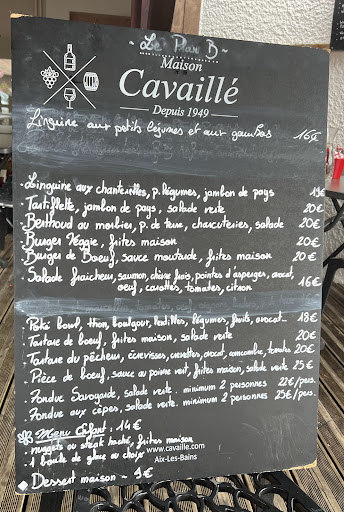 ~ Le Plan B ~
Maison
Cavaillé
Depuis 1949
Linguine aux petits légumes et aux gambas 16€
• Linguine aux chanterelles, p. légumes, jambon de pays 19€
• Tartiflette, jambon de pays, salade verte 20€
• Berthoud au morbier, p. de terre, charcuteries, salade 20€
• Burger Veggie, frites maison 20€
• Burger de Boeuf, sauce moutarde, frites maison 20€
• Salade fraîcheur, saumon, chèvre frais, pointes d'asperges, avocat,
oeuf, carottes, tomates, citron 16€
• Poké bowl, thon, boulgour, lentilles, légumes, fruits, avocat 18€
• Tartare de boeuf, frites maison, salade verte 20€
• Tartare du pêcheur, écrevisses, crevettes, avocat, concombre, tomates 20€
• Pièce de boeuf, sauce au poivre vert, frites maison, salade verte 25€
• Fondue Savoyarde, salade verte. minimum 2 personnes 22€/pers.
• Fondue aux cèpes, salade verte. minimum 2 personnes 25€/pers.
Menu Enfant : 14€
nuggets ou steak haché, frites maison
1 boule de glace au choix
www.cavaille.com
Aix-Les-Bains
Dessert maison - 9€